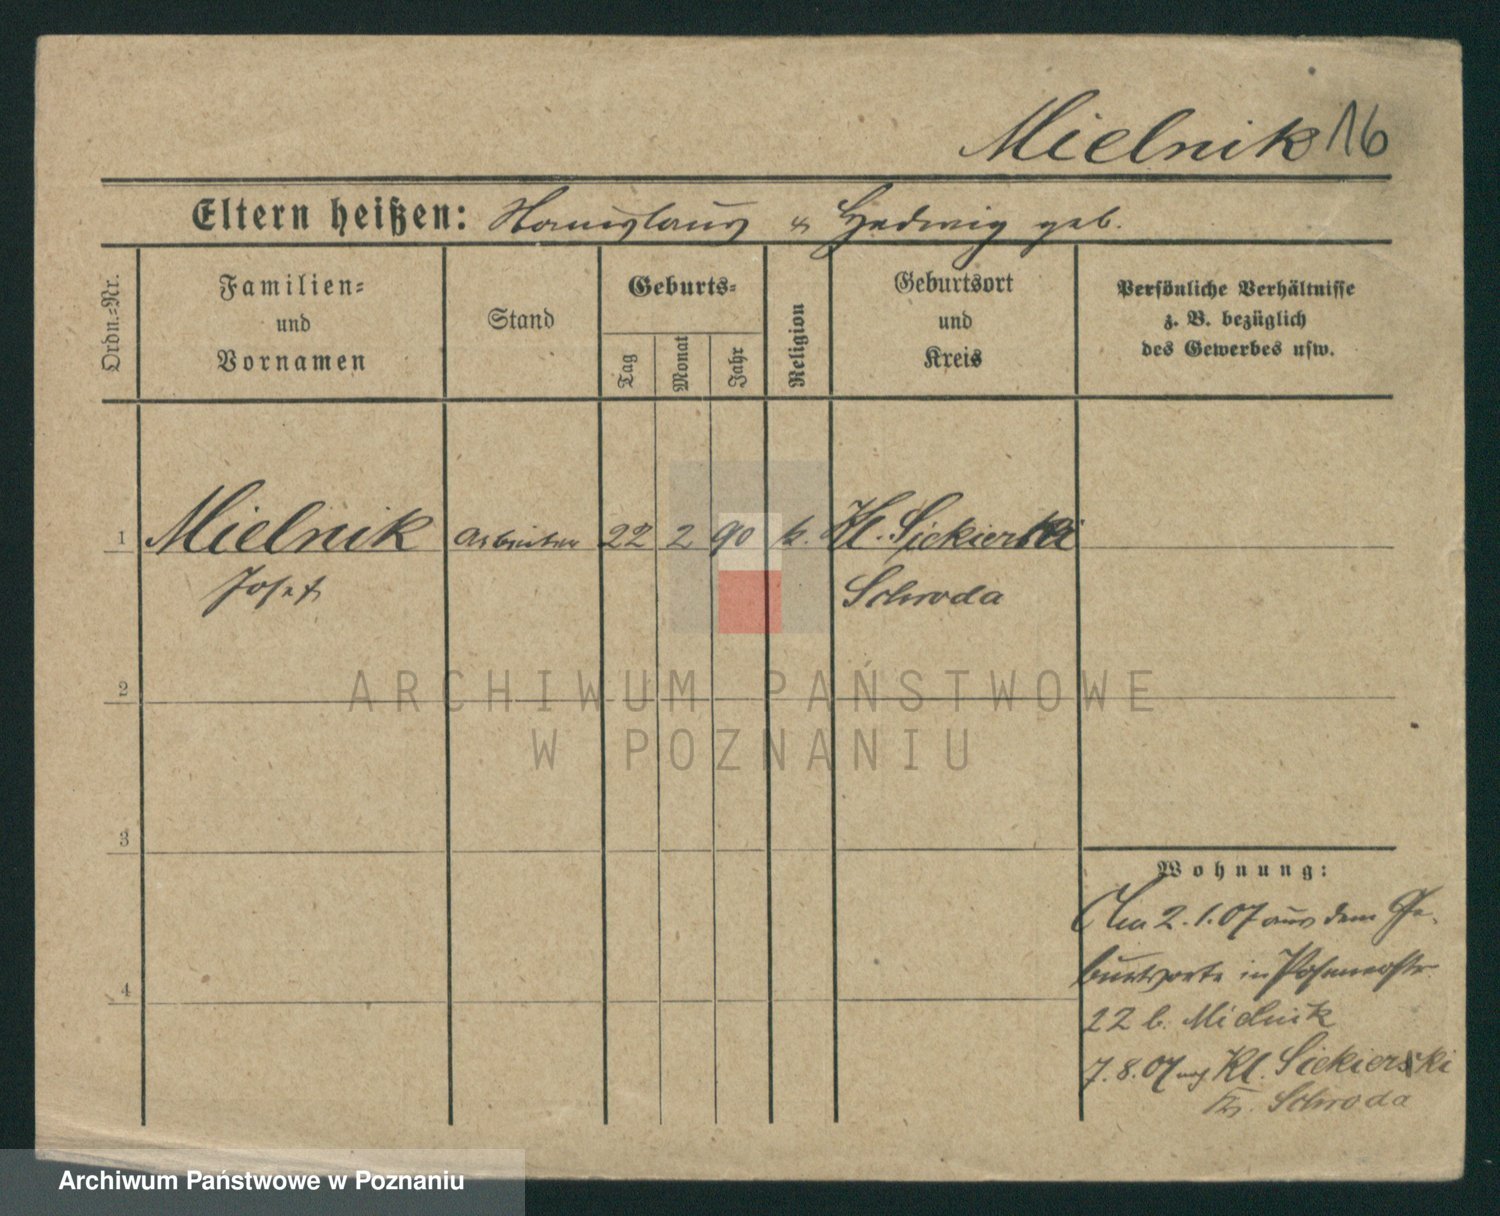 Mielnik 16
Eltern heißen: Stanislaus & Hedwig geb.
Ordn.-Nr.
Familien-
und
Vornamen
Stand
Geburts-
Tag
Monat
Jahr
Religion
Geburtsort
und
Kreis
Persönliche Verhältnisse
z. B. bezüglich
des Gewerbes usw.
1 Mielnik Arbeiter 22 2 90 k. Kl. Siekierki
Josef Schroda
2
ARCHIWUM PAŃSTWOWE
W POZNANIU
3
Wohnung:
Am 2.1.07 aus dem Ge-
4 burtsorte in Posenerstr.
22 b. Mielnik
7.8.07 Kl. Siekierki
Kr. Schroda
Archiwum Państwowe w Poznaniu